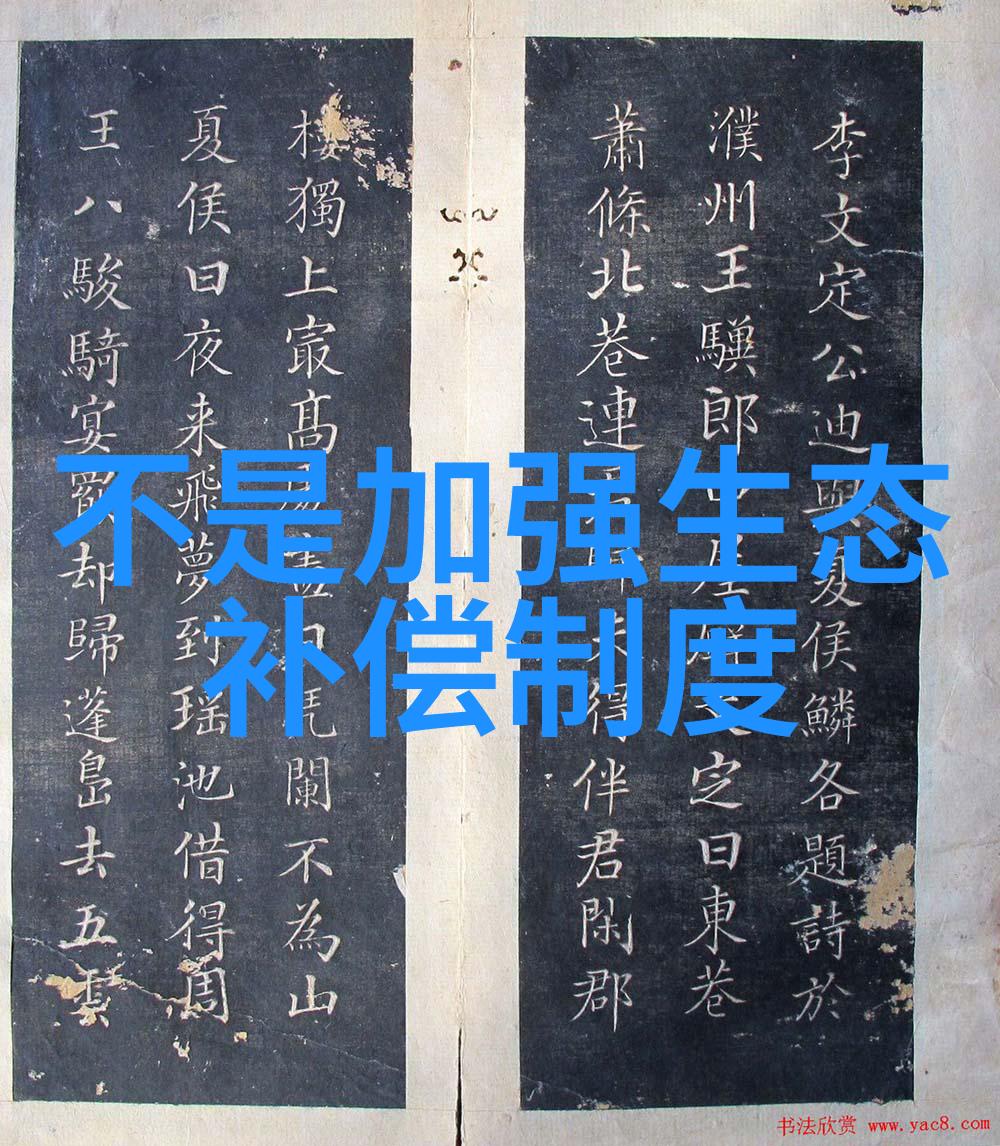 不是加强生态
补偿制度
李文定公迪與夏侯鱗各題詩於
濮州王驥郎中屋 定曰東巷
蕭條北巷連 未得伴君閑郡
樓獨上最高 凭闌不為山
夏侯曰夜来飛夢到瑶池借得周
王八駿騎宴罷却歸蓬島去五雲
书法欣赏 www.yac8.com